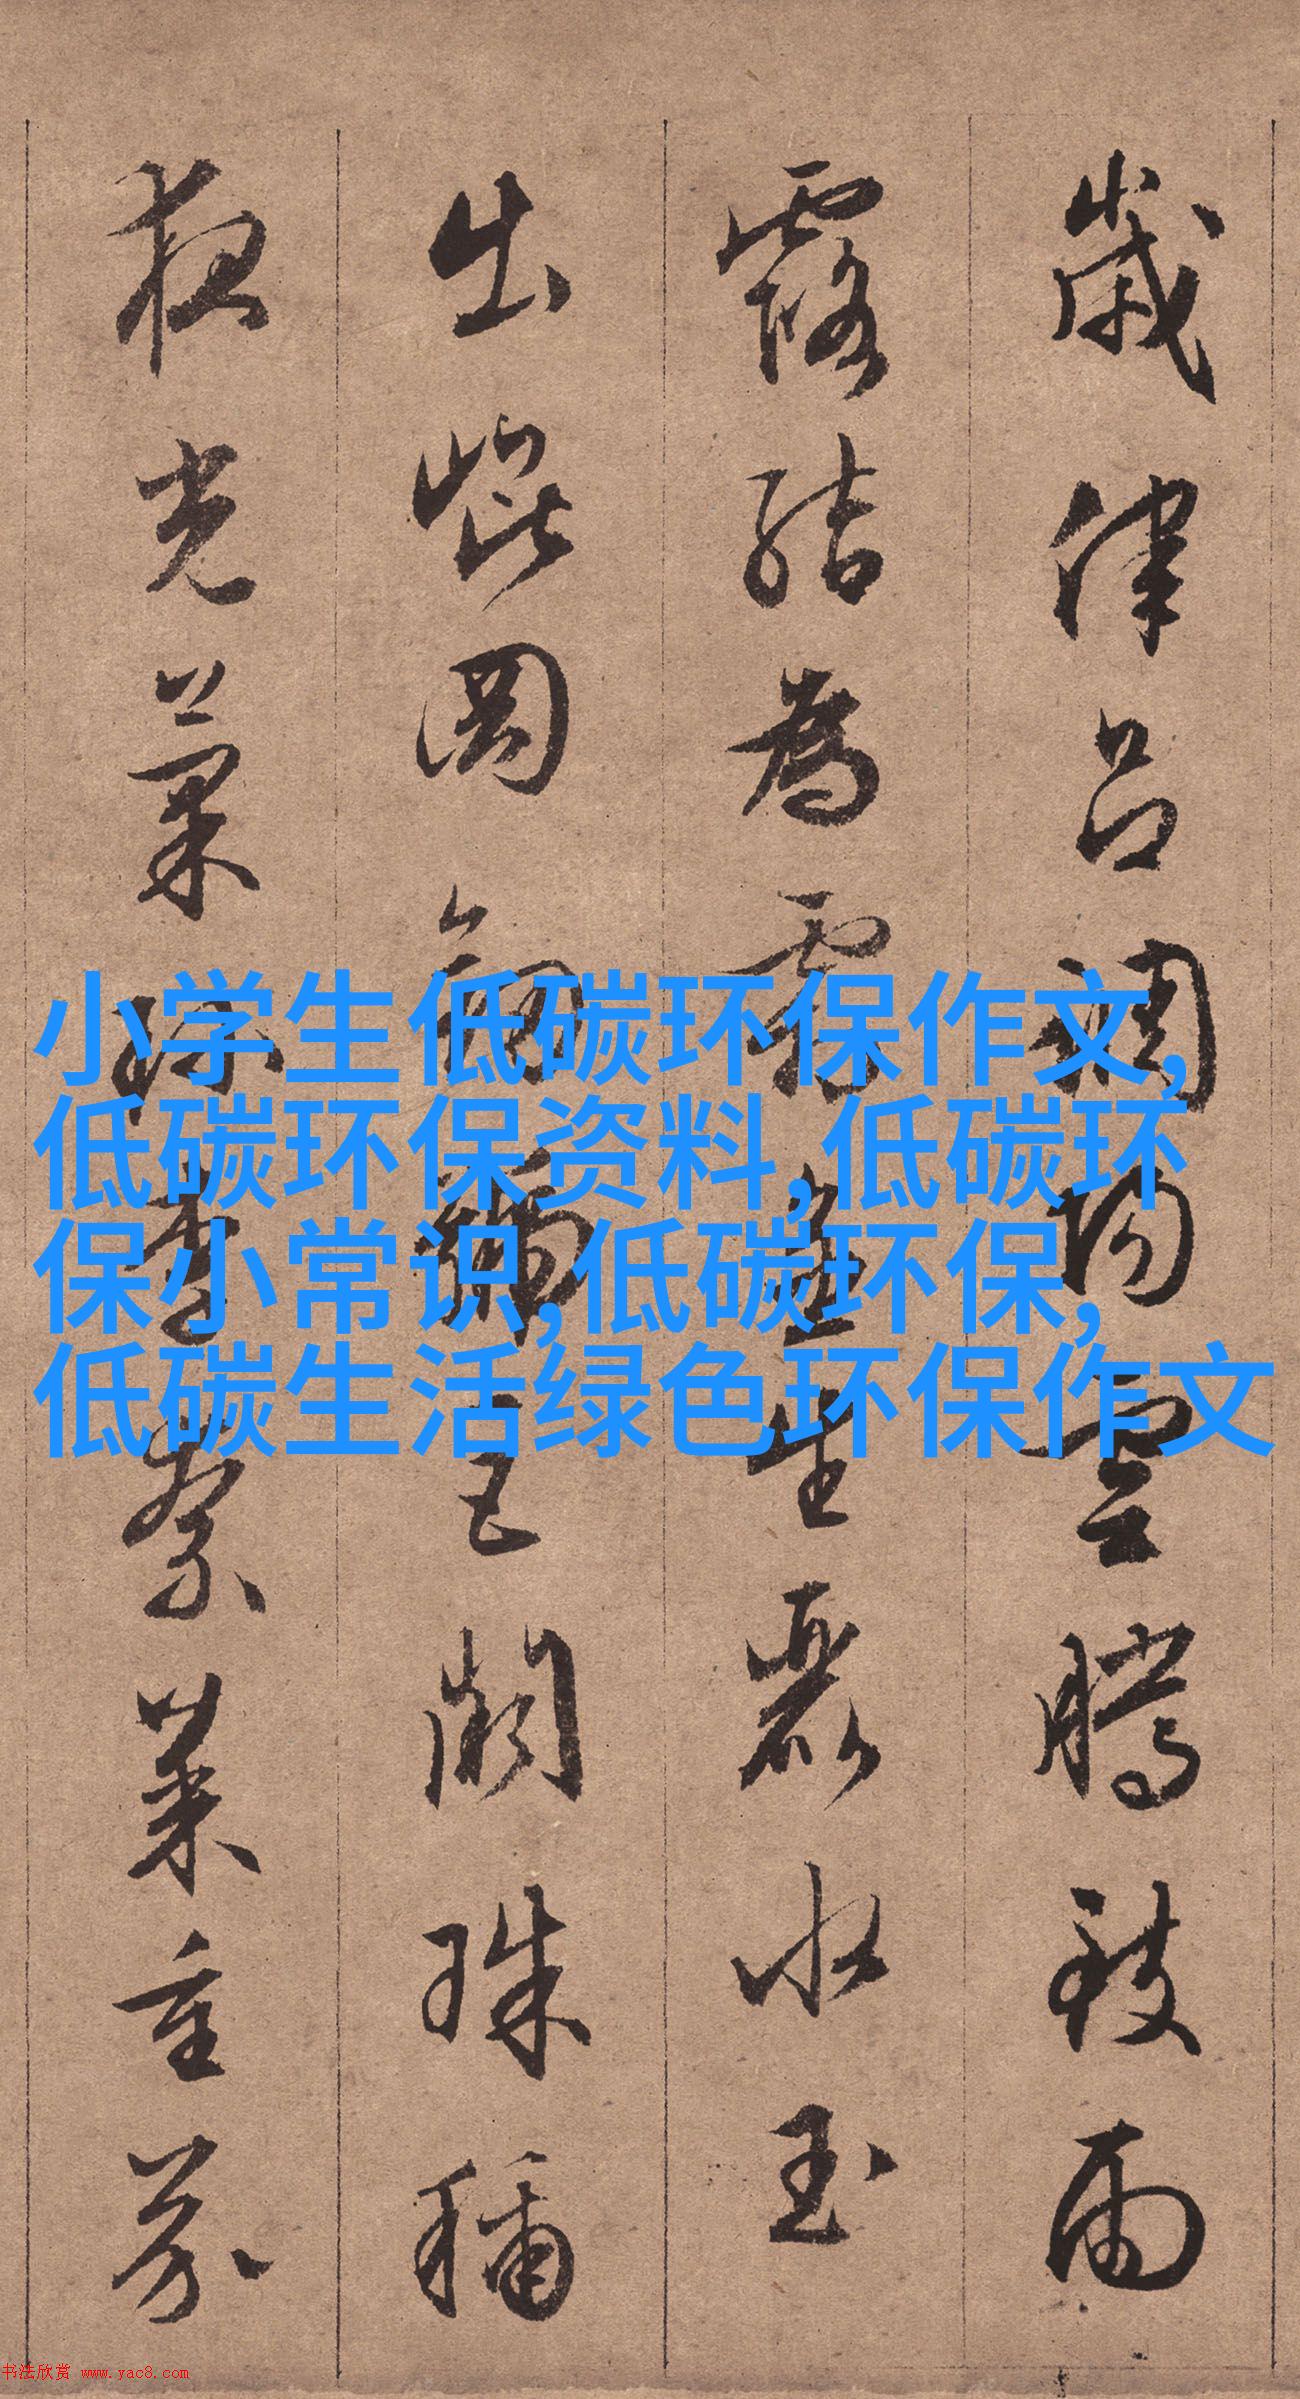 歲律呂調陽雲騰致雨
露結為霜金生麗水玉
出崐岡劍號巨闕珠稱
夜光菓珍李柰菜重芥
小学生低碳环保作文,
低碳环保资料,低碳环
保小常识,低碳环保,
低碳生活绿色环保作文
书法欣赏 www.yac8.com